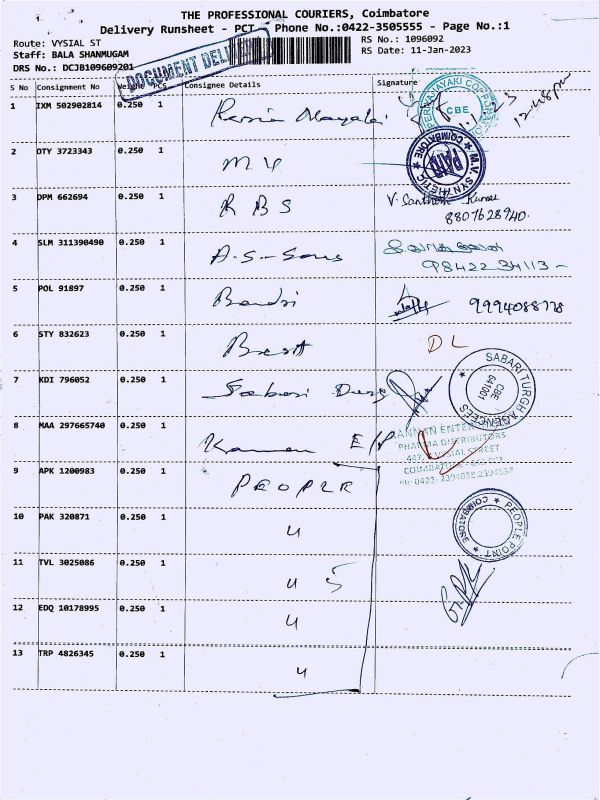 THE PROFESSIONAL COURIERS, Coimbatore
Delivery Runsheet - PCT - Phone No.:0422-3505555 - Page No.:1
Route: VYSIAL ST
RS No.: 1096092
Staff: BALA SHANMUGAM
RS Date: 11-Jan-2023
DRS No.: DCJB109609201
DOCUMENT DELI
S No Consignment No Weight PCS Consignee Details Signature
1 IXM 502902814 0.250 1
CBE
12-48pm
2 OTY 3723343 0.250 1 M V
M.V. SYNTHETIC COIMBATORE PAID
3 DPM 662694 0.250 1 R B S V. Santhosh Kumar
8807628940.
4 SLM 311390490 0.250 1 A.S-Sons
98422 34113 -
5 POL 91897 0.250 1 9994088778
6 STY 832623 0.250 1 Best DL
7 KDI 796052 0.250 1 Sabari
SABARI TURGH AGENCEES
CBE
641001
8 MAA 297665740 0.250 1 Kannan E/P
KANNAN ENTER
PHARMA DISTRIBUTORS
447, VYSIAL STREET
9 APK 1200983 0.250 1 PEOPLE
10 PAK 320871 0.250 1 u
PEOPLE POINT COIMBATORE
11 TVL 3025086 0.250 1 u 5
12 EDQ 10178995 0.250 1 u
13 TRP 4826345 0.250 1 u